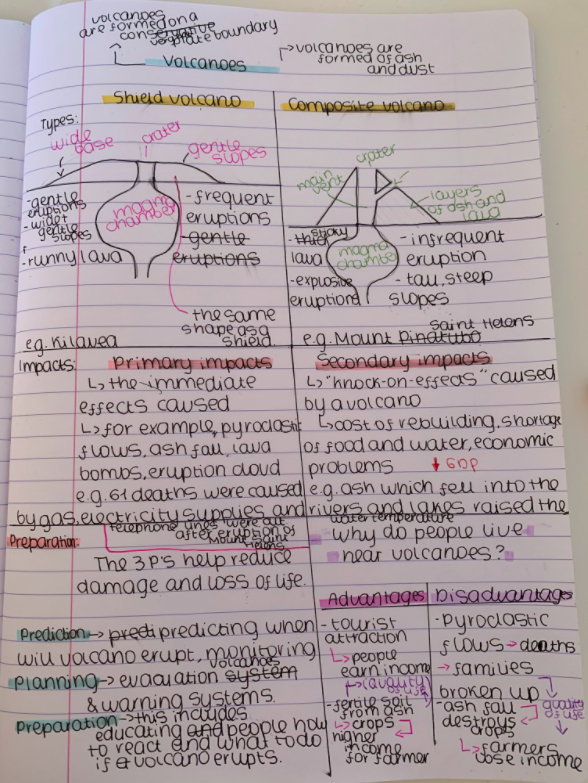 volcanoes
are formed on a
conservative
plate boundary
Volcanoes
volcanoes are
formed of ash
and dust
Shield volcano
Composite volcano
Types:
wide
base
crater
gentle
slopes
magma
chamber
-gentle
eruptions
gentle
slopes
-runny lava
-frequent
eruptions
-gentle
eruptions
the same
shape as a
shield
e.g. Kilavea
crater
main
vent
layers
of ash and
lava
magma
chamber
sticky
-thick
lava
-explosive
eruptions
-infrequent
eruption
-tall, steep
slopes
Saint Helens
e.g. Mount Pinatubo
Impacts:
Primary impacts
↳ the immediate
effects caused
↳ for example, pyroclastic
flows, ash fall, lava
bombs, eruption cloud
e.g. 61 deaths were caused
by gas, electricity supplies and
telephone lines were cut
after eruption of
Mount Saint
Helens
Secondary impacts
↳ "knock-on-effects" caused
by a volcano
↳ cost of rebuilding, shortage
of food and water, economic
problems ↓ GDP
e.g. ash which fell into the
rivers and lakes raised the
water temperature
Preparation:
The 3P's help reduce
damage and loss of life.
Prediction → predi predicting when
will volcano erupt, monitoring
volcanoes
Planning → evacuation system
& warning systems.
Preparation → this includes
educating and people how
to react and what to do
if a volcano erupts.
why do people live
near volcanoes?
Advantages
-tourist
attraction
↳ people
earn income
(quality of life)
-fertile soil
from ash
↳ crops
higher
income
for farmer
Disadvantages
-Pyroclastic
flows → deaths
→ families
broken up
-ash fall
destroys
crops
↳ farmers
lose income
quality
of life